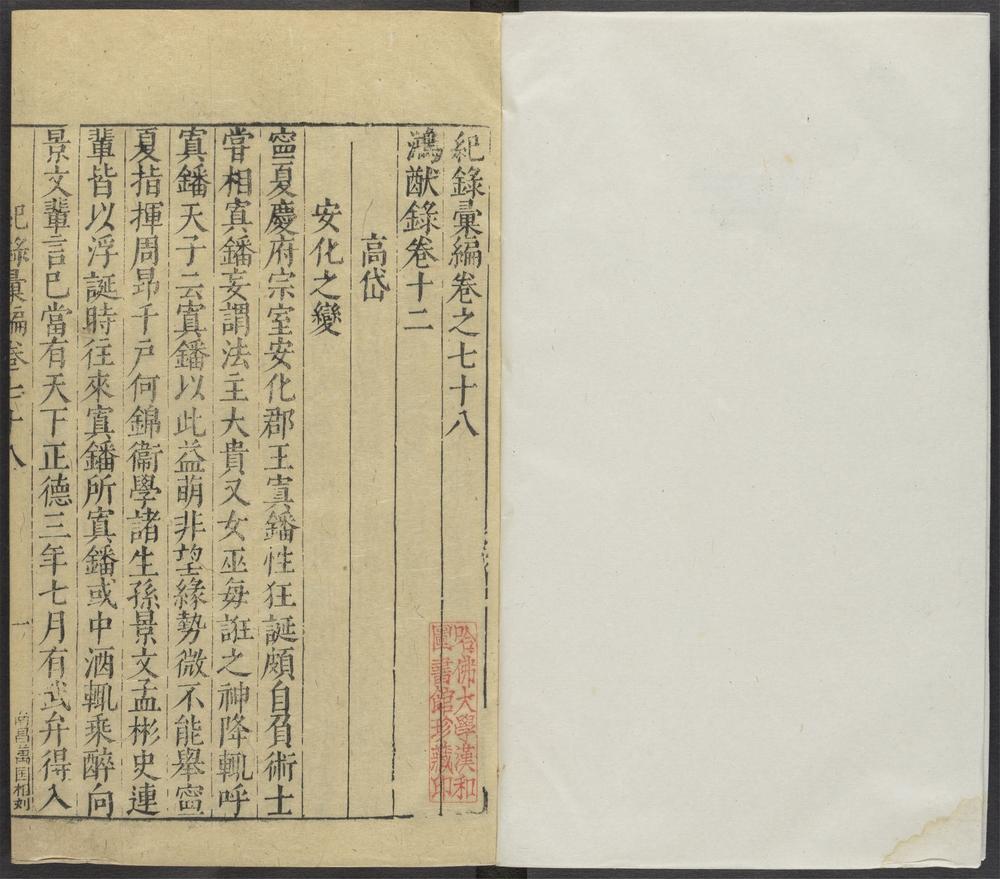 紀錄彙編卷之七十八
鴻猷錄卷十二
高岱
安化之變
寧夏慶府宗室安化郡王寘鐇性狂誕頗自負術士
嘗相寘鐇妄謂法主大貴又女巫每誑之神降輒呼
寘鐇天子云寘鐇以此益萌非望緣勢微不能舉寧
夏指揮周昂千戶何錦衛學諸生孫景文孟彬史連
輩皆以浮誕時往來寘鐇所寘鐇或中酒輒乘醉向
景文輩言已當有天下正德三年七月有武弁得入
紀錄彙編卷七十八
一
南昌萬国相刻
哈佛大學漢和
圖書館珍藏印